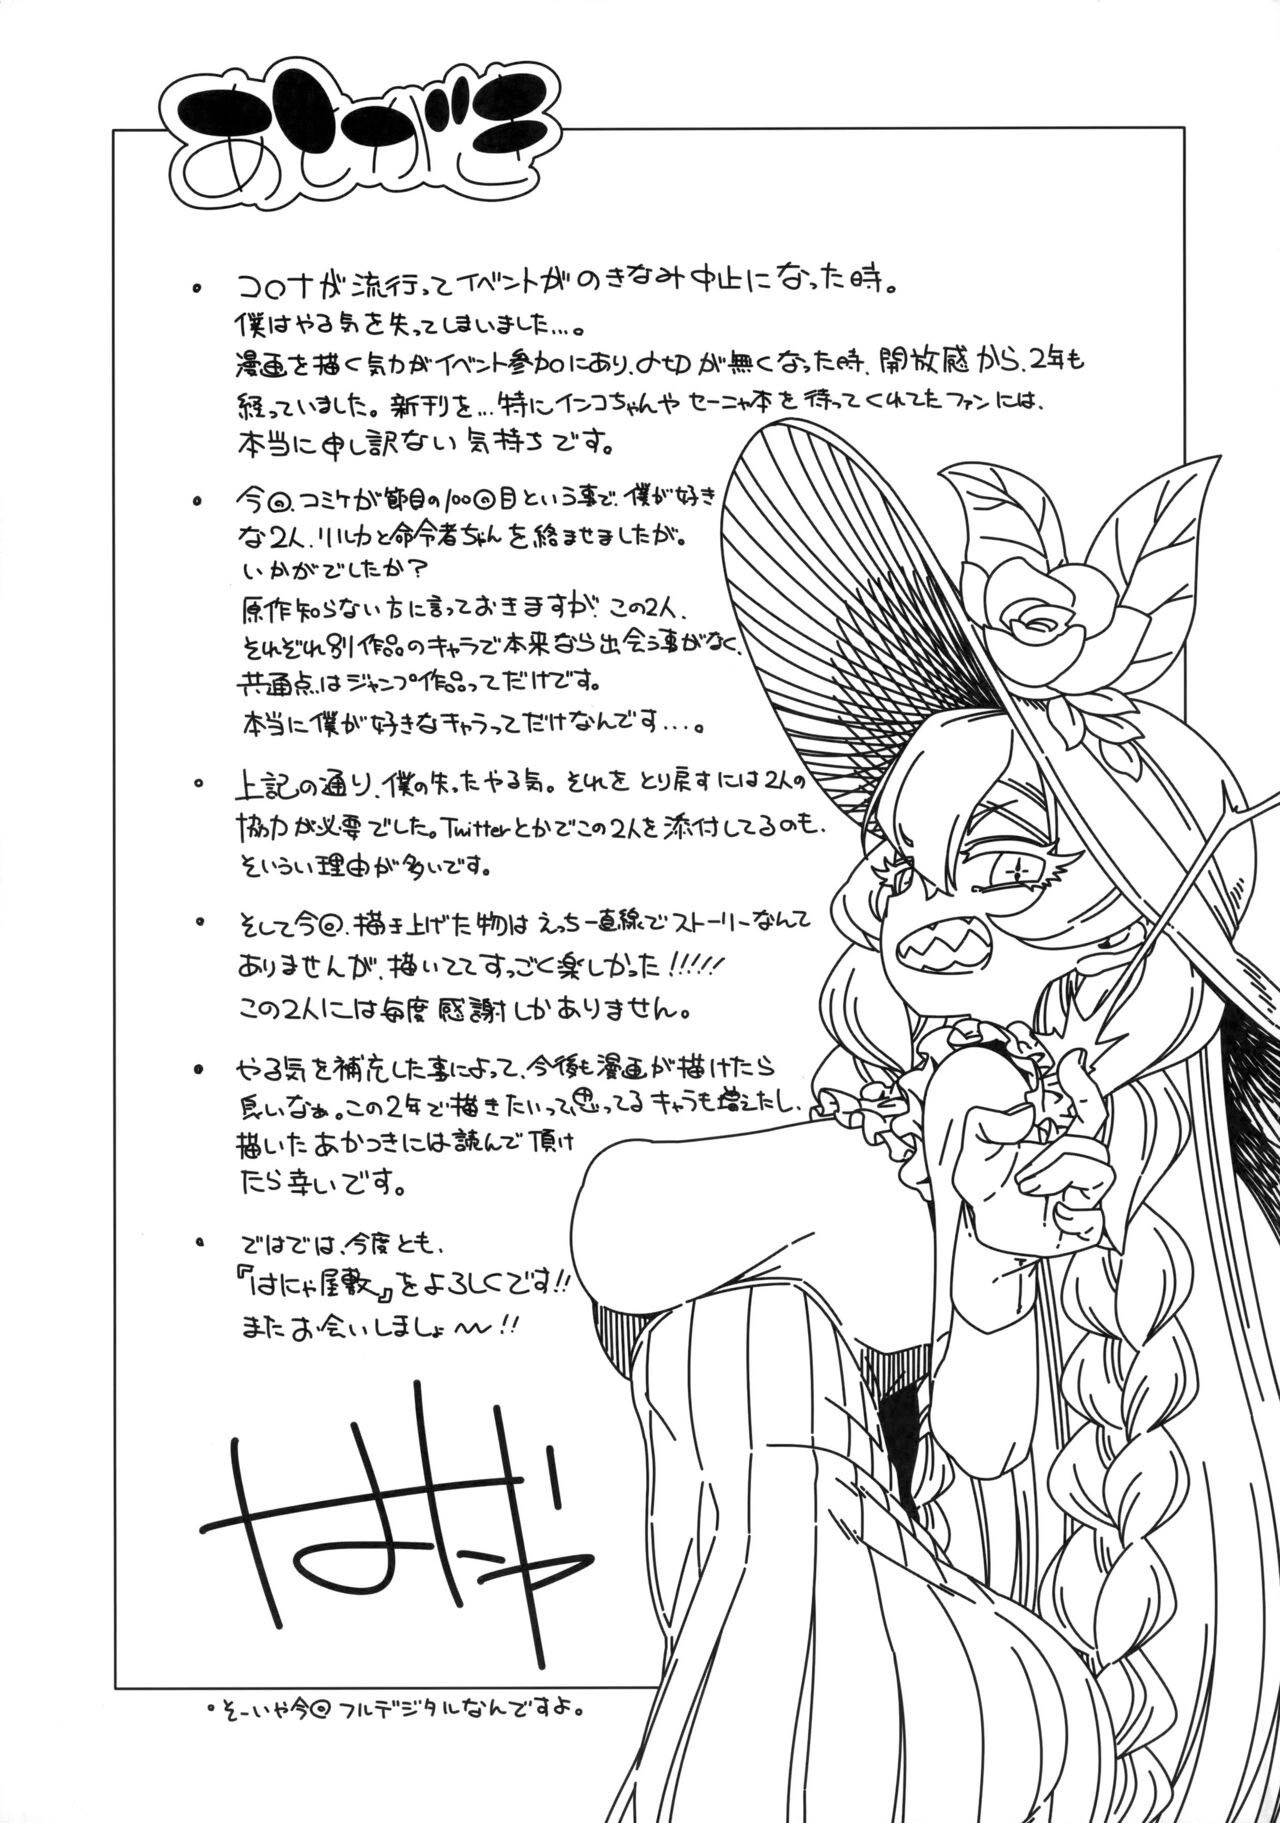 あとがき
・コロナが流行ってイベントがのきなみ中止になった時。
僕はやる気を失ってしまいました…。
漫画を描く気力がイベント参加にあり、〆切が無くなった時、開放感から、2年も
経っていました。新刊を…特にインコちゃんやセーニャ本を待ってくれてたファンには、
本当に申し訳ない気持ちです。
・今回、コミケが節目の100回目という事で、僕が好き
な2人、リルカと命令者ちゃんを絡ませましたが。
いかがでしたか?
原作知らない方に言っておきますが、この2人、
それぞれ別作品のキャラで本来なら出会う事がなく、
共通点はジャンプ作品ってだけです。
本当に僕が好きなキャラってだけなんです…。
・上記の通り、僕の失ったやる気。それをとり戻すには2人の
協力が必要でした。Twitterとかでこの2人を添付してるのも、
そいういい理由が多いです。
・そして今回、描き上げた物はえっち一直線でストーリーなんて
ありませんが、描いててすっごく楽しかった!!!!!
この2人には毎度感謝しかありません。
・やる気を補充した事によって、今後も漫画が描けたら
良いなぁ。この2年で描きたいって思ってるキャラも増えたし、
描いたあかつきには読んで頂け
たら幸いです。
・ではでは、今度とも、
『はにゃ屋敷』をよろしくです!!
またお会いしましょ〜!!
はにゃ
・そーいや今回フルデジタルなんですよ。